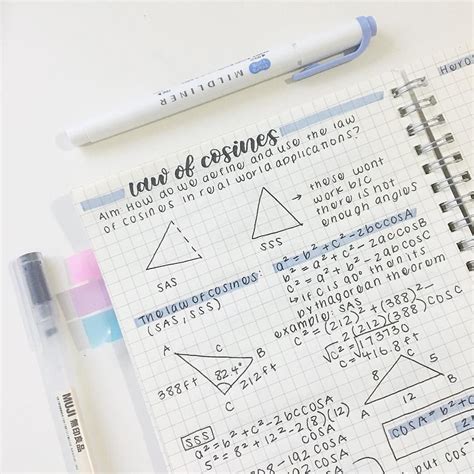 MILDLINER
law of cosines
Hero
Aim: How do we define and use the law
of cosines in real world applications?
these wont
work b/c
there is not
enough angles
SAS
SSS
The law of cosines:
(SAS, SSS)
a² = b² + c² - 2bccosA
b² = a² + c² - 2accosB
c² = a² + b² - 2abcosC
↳ if C is 90° then its
pythagorean theorem
example: SAS
c² = (212)² + (388)² -
2(212)(388)cosC
√c² = √173730
c = 416.8 ft
A
C
B
82.4°
388ft
212ft
C
C
8
5
A
12
B
SSS
a² = b² + c² - 2bccosA
5² = 8² + 12² - 2(8)(12)
cosA
cosA
COSA =
MUJI 無印良品